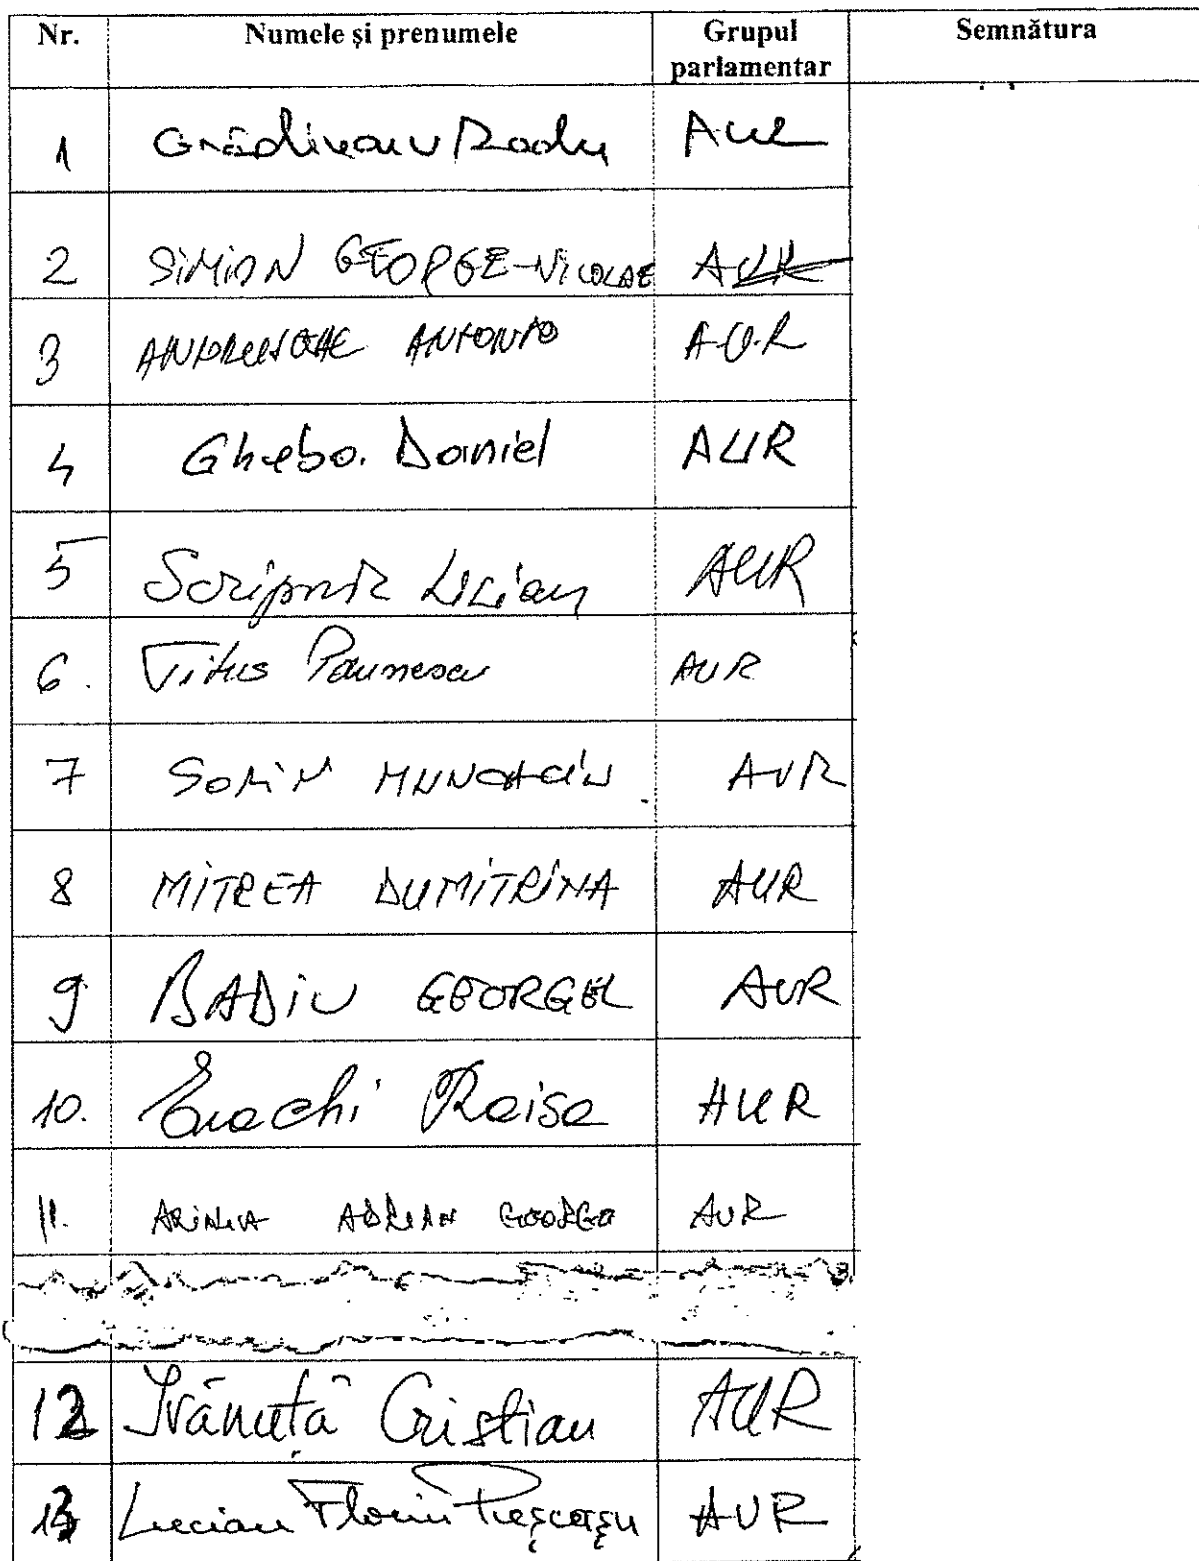 Nr. Numele și prenumele Grupul parlamentar Semnătura
1 Grădinaru Radu AUR
2 SIMION GEORGE-NICOLAE AUR
3 ANDRUSCEAC ANTONIO A.U.R
4 Ghebo. Daniel AUR
5 Scripnic Lilian AUR
6. Titus Paunescu AUR
7 SORIN MUNCACIU AUR
8 MITREA DUMITRINA AUR
9 BADIU GEORGEL AUR
10. Enachi Raisa AUR
11. ADRIAN GEORGE AUR
12 Ivănuță Cristian AUR
13 Lucian Florin Pușcașu AUR